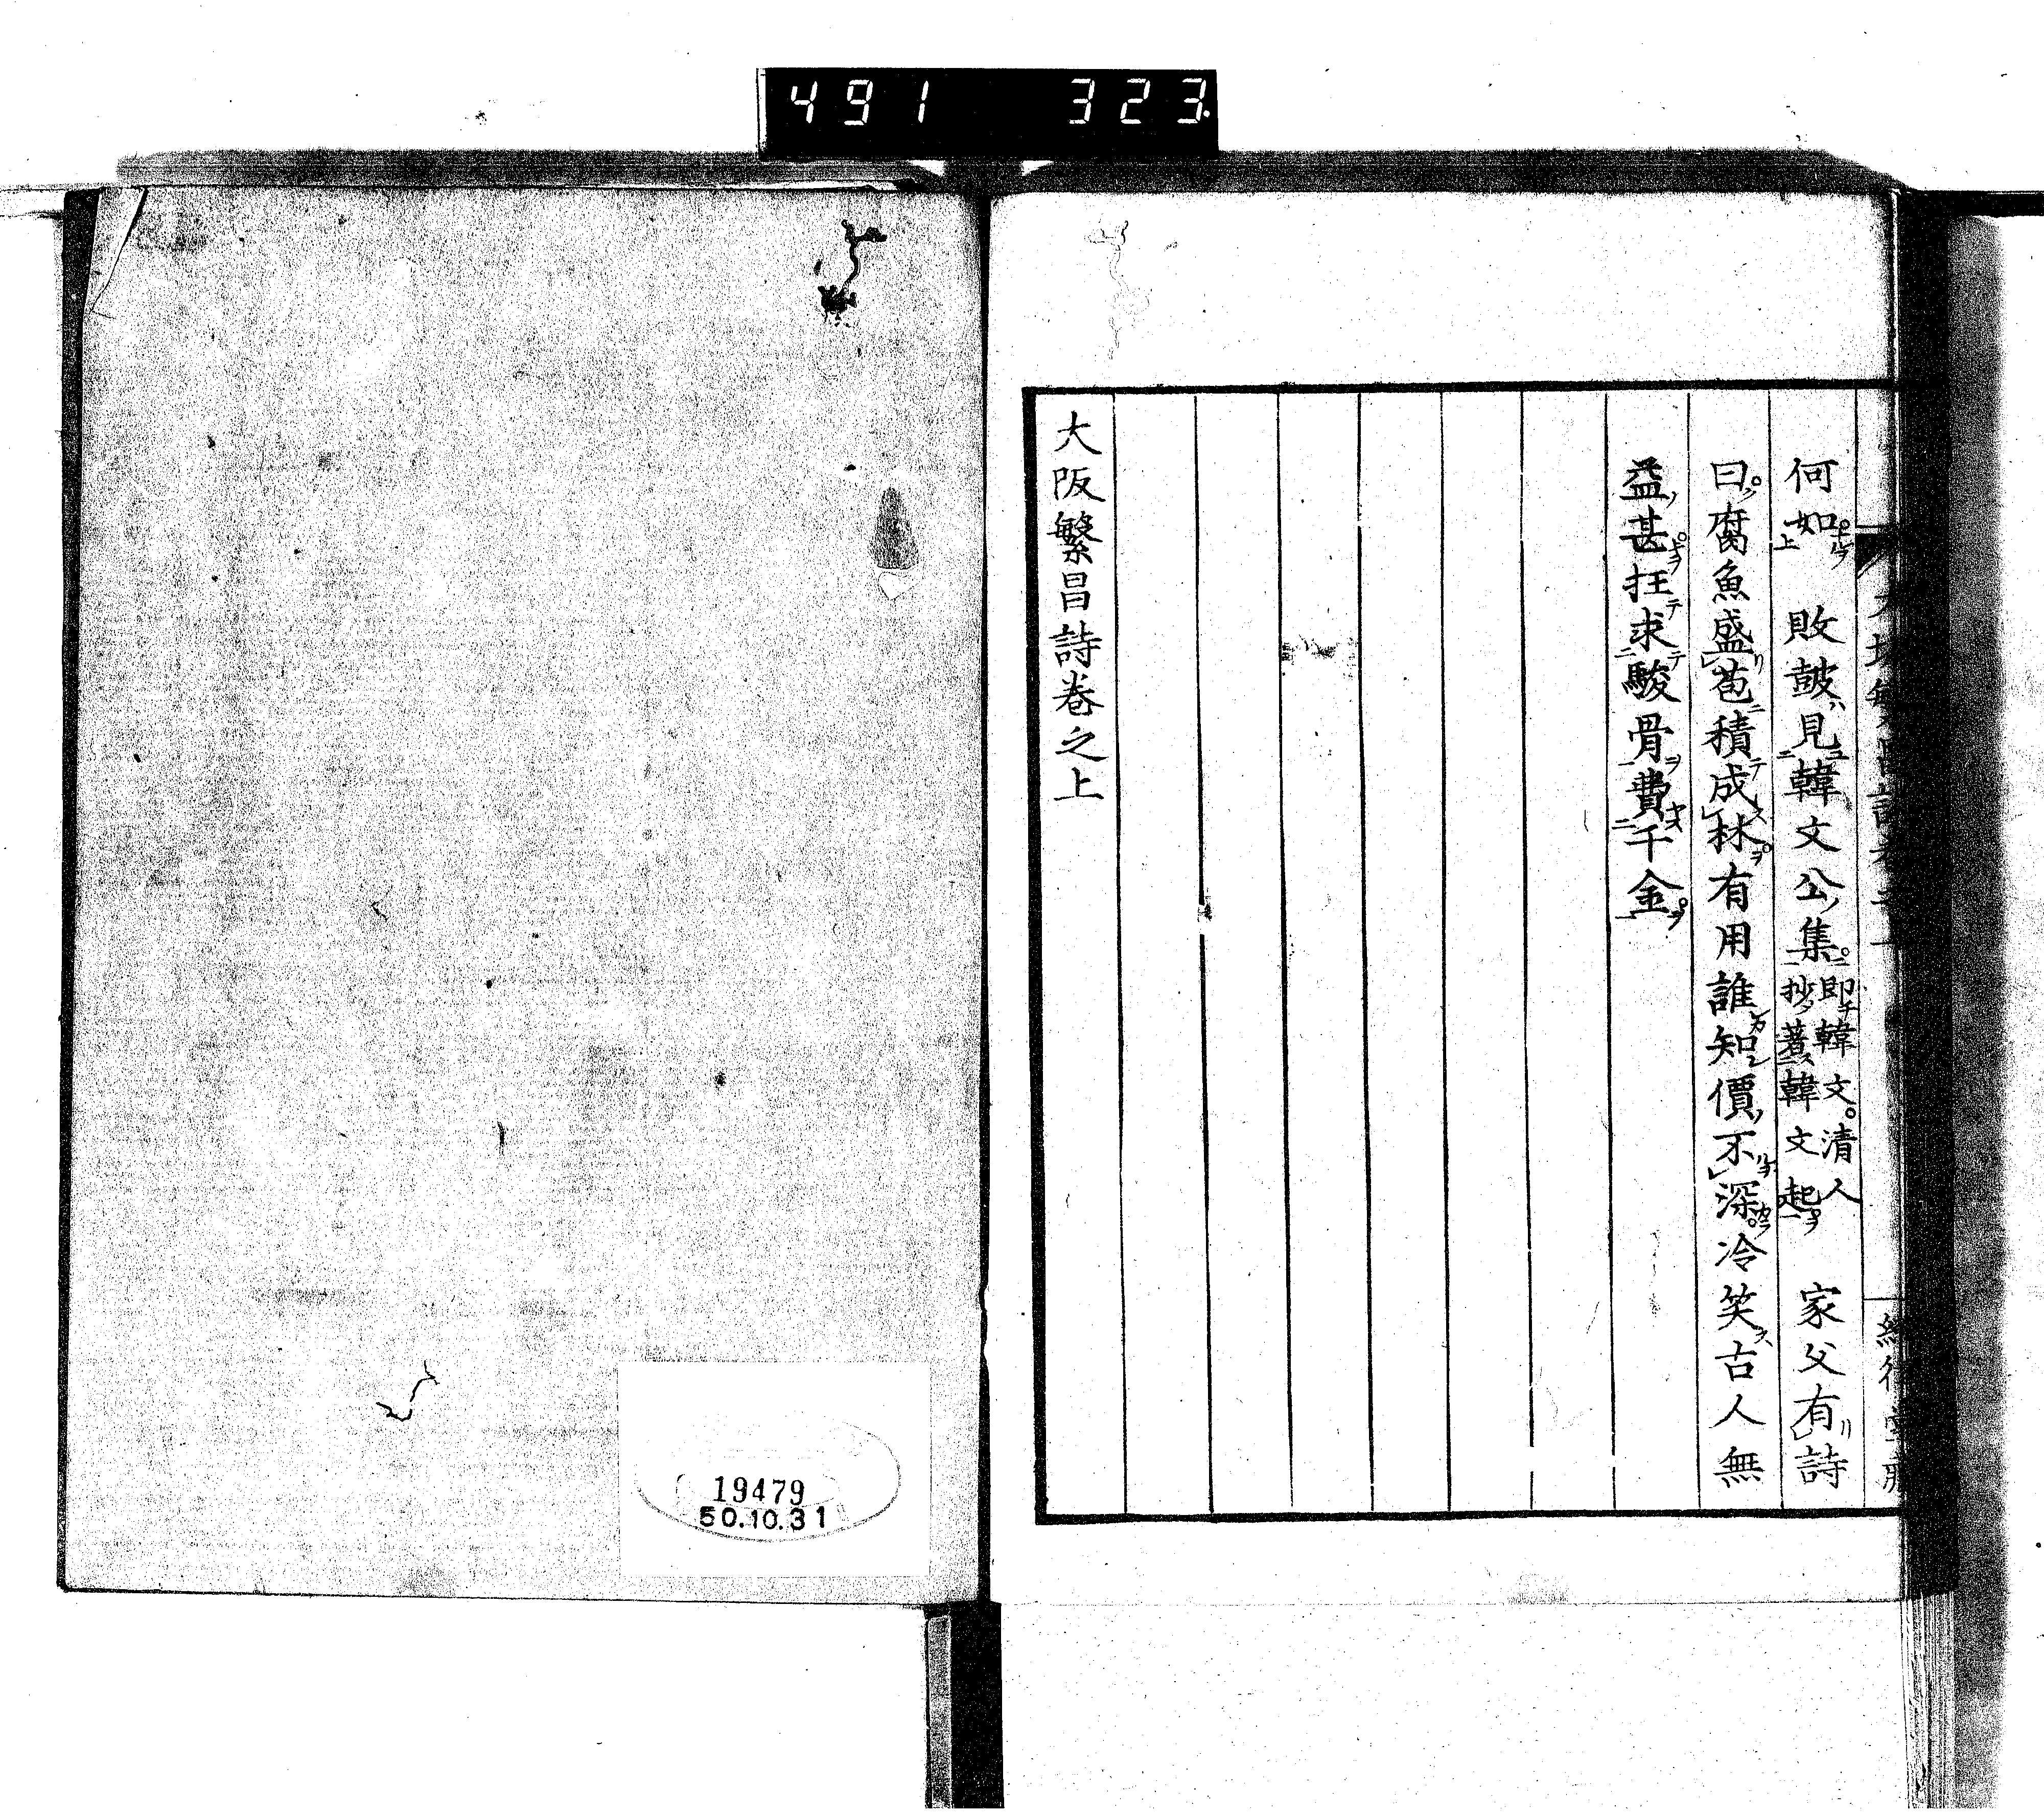 491 323
何如 敗鼓見韓文公集即韓文清人抄著韓文起 家父有詩
曰腐魚盛苞積成林有用誰知價不深冷笑古人無
益甚抂求駿骨費千金
大阪繁昌詩巻之上
19479
50.10.31